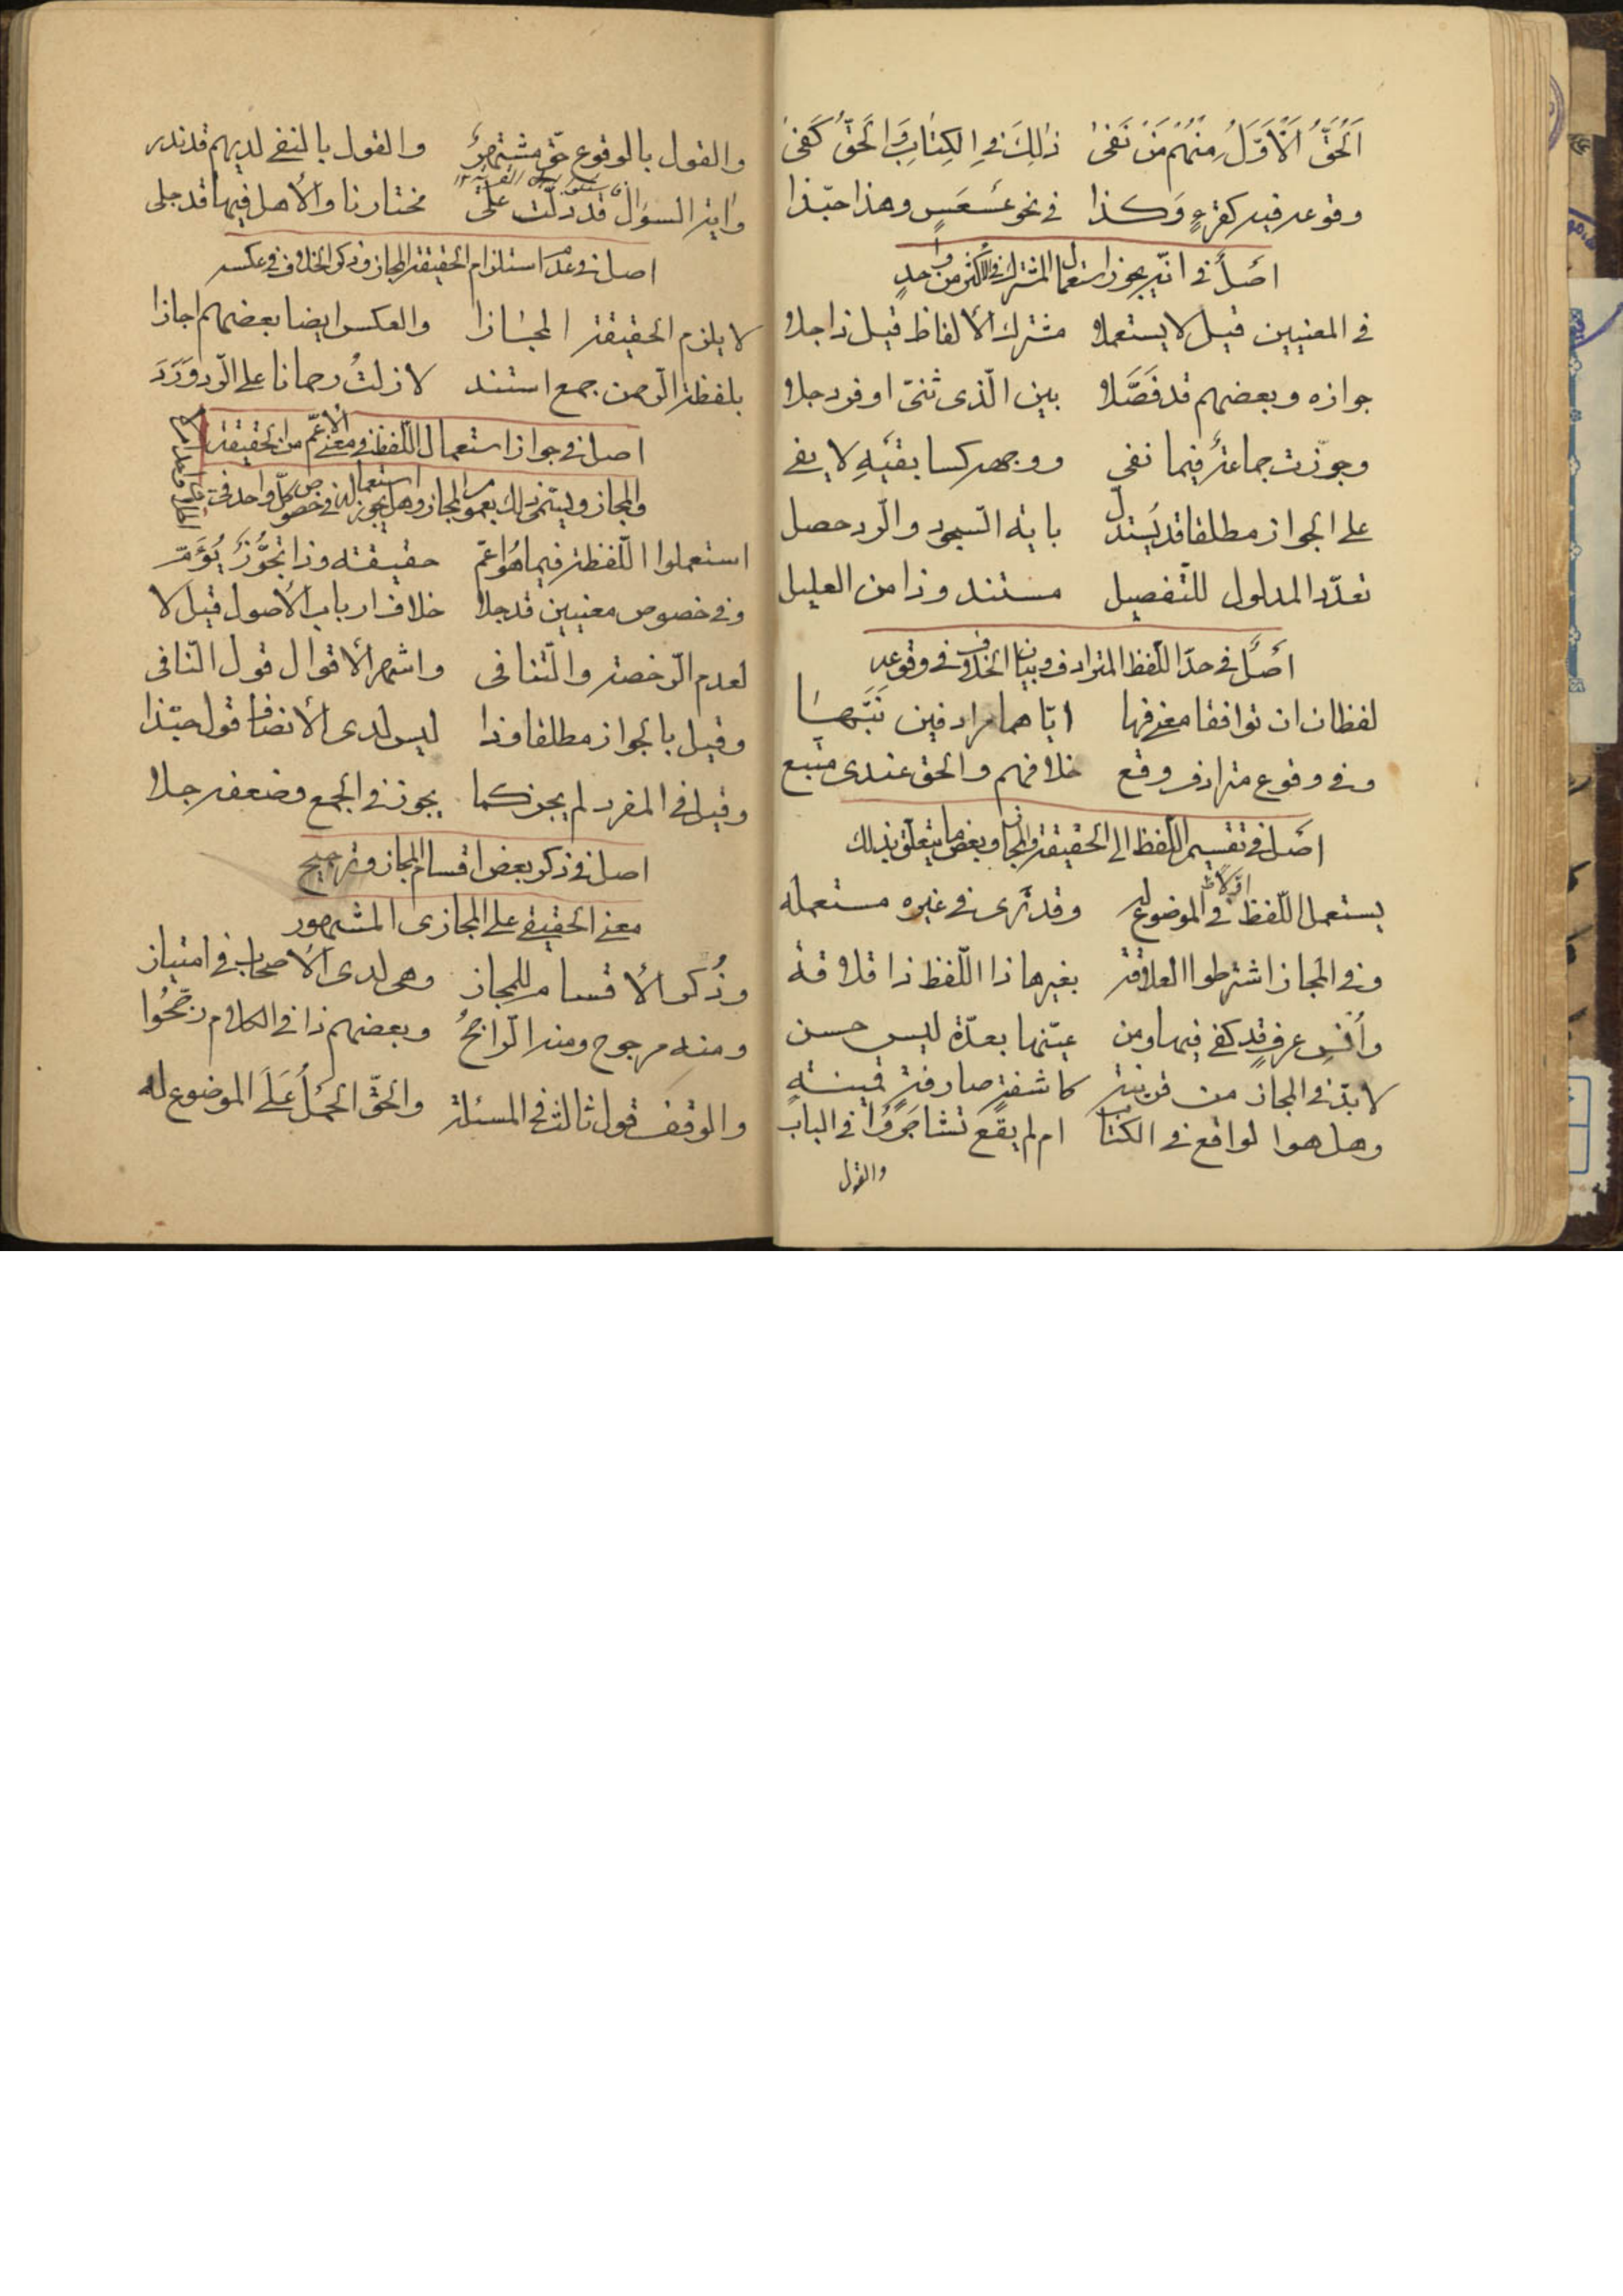 اَلْحَقُّ اَنَّ الْاَوَّلُ مِنْهُمْ مَنْ نَفیٰ ذٰلِكَ فِي الكِتٰابِ وَ الْحَقُّ كَفیٰ
وقوعه فيه كقرءٍ وَكذا في نحو عَسْعَسٍ وهذا حبّذا
اَصْلٌ في انّه يجوز استعمال المشترك في الاكثر من واحدٍ
في المعنيين قيل لا يستعملا مشترك الألفاظ قيل ذا جلا
جوازه وبعضهم قد فَصَّلا بين الّذى ثنّى او فرد جلا
وجوّزت جماعةٌ فيما نفى ووجهه كسابقيه لا يفى
على الجواز مطلقا قد يُستدل باية السّجود والرّد حصل
تعدّد المدلول للتّفصيل مستند وذا من العليل
اَصْلٌ في حدّ اللّفظ المترادف وبيان الخلاف في وقوعه
لفظان ان توافقا معنى فها ايّاهما مرادفين نَبَّهٰا
وفى وقوع مترادف وقع خلافهم والحق عندى متّبع
اَصْلٌ في تقسيم اللّفظ الى الحقيقة والمجاز وبعض ما يتعلّق بذلك
يستعمل اللّفظ في الموضوع له وقد تُرى في غيره مستعمله
وفى المجاز اشترطوا العلاقة بغيرها ذا اللّفظ ذا قلاقة
وأُنس عرفٍ قد كفى فيها ومن عيّنها بعدّة ليس حسن
لا بدّ فى المجاز من قرينة كاشفةٍ صارفةٍ مبينةٍ
وهل هوا لواقع فى الكتاب ام لم يقع تشاجَرُوا في الباب
والقول
والقول بالوقوع حقّ مشتهرٌ والقول بالنفى لديهم قد ندر
واٰية السؤال قد دلّت على مختارنا والأهل فيها قد جلى
اصل فى عدم استلزام الحقيقة المجاز وذكر الخلاف في عكسه
لا يلزم الحقيقة المجٰازا والعكس ايضا بعضهم اجازا
بلفظة الرّحمن جمع استند لا زلتُ رحمانا على الرّد وَرَدَ
اصل فى جواز استعمال اللّفظ فى معنى الاعمّ من الحقيقة
والمجاز ويسمّى ذلك بعموم المجاز وهل يجوز استعماله في خصوص كلّ واحد
استعملوا اللّفظة فيما هُوَ اعمّ حقيقته وذا تجوُّزٌ يُؤَمّ
وفى خصوص معنيين قد جلا خلاف ارباب الأصول قيل لا
لعدم الرّخصة والتّنافى واشهر الأقوال قول النّافى
وقيل بالجواز مطلقا وذا ليس لدى الأنصاف قول حبّذا
وقيل في المفرد لم يجز كما يجوز فى الجمع وضعفه جلا
اصل في ذكر بعض اقسام المجاز وترجيح
معنى الحقيقى على المجازى المشهور
وذُكر الأقسام للمجاز وهى لدى الأصحاب في امتياز
ومنه مرجوح ومنه الرّاجحُ وبعضهم ذا في الكلام رجّحُوا
والوقف قول ثالث في المسئلة والحقّ الحملُ عَلَى الموضوع له